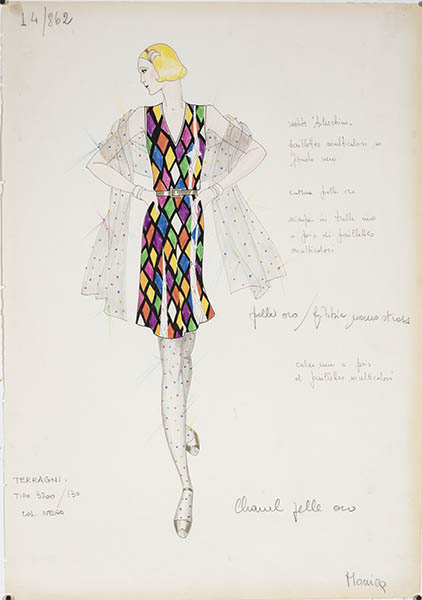 14/862
abito "Arlecchino"
paillettes multicolori su
fondo nero
cintura pelle oro
sciarpa in tulle nero
a pois di paillettes
multicolori
pelle oro / fibbia
calze nere a pois
di paillettes multicolori
TERRAGNI.
TIPO 3200/130
COL. NERO
Chanel pelle oro
Monica